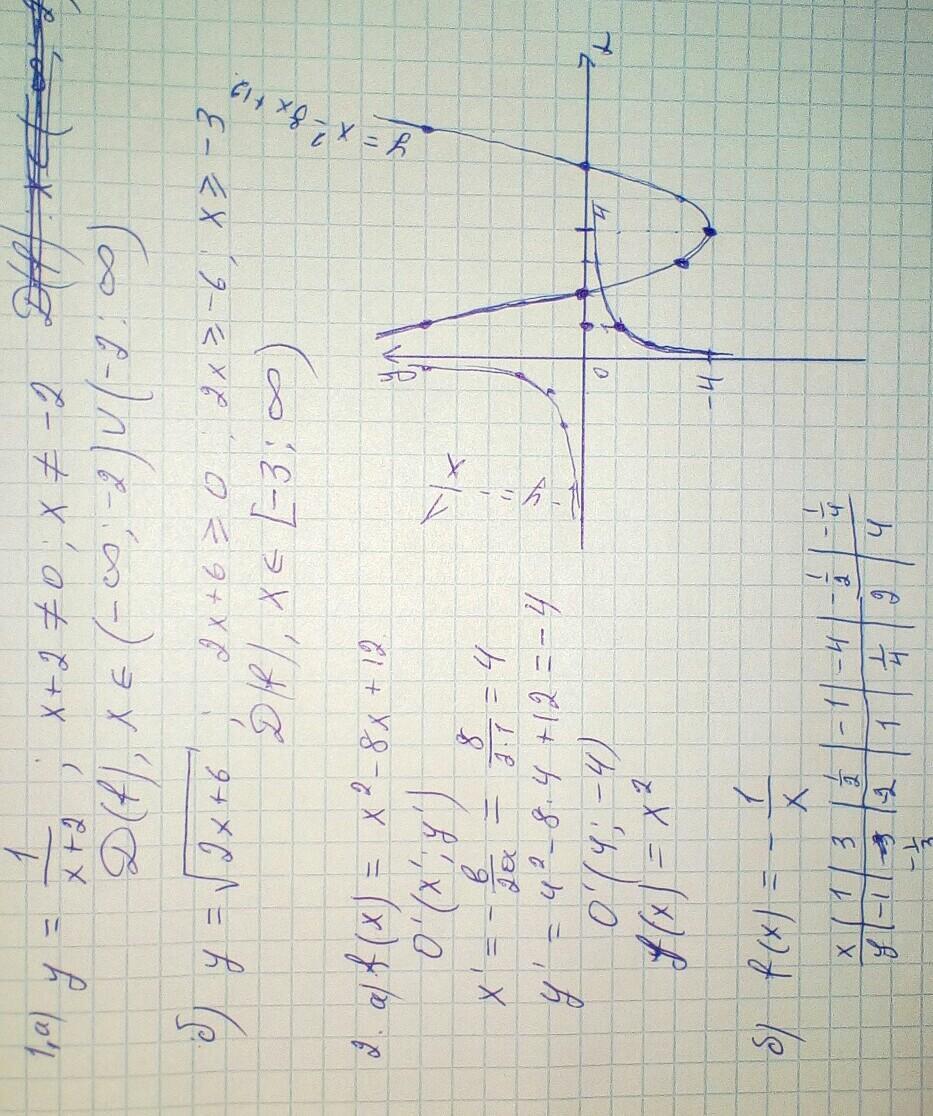 1, а) y = 1/(x+2) ; x+2 ≠ 0 ; x ≠ -2
D(f), x ∈ (-∞; -2) ∪ (-2; ∞)
б) y = √(2x+6) ; 2x+6 ≥ 0 ; 2x ≥ -6 ; x ≥ -3
D(f), x ∈ [-3; ∞)
2. а) f(x) = x² - 8x + 12
0'(x'; y')
x' = -в/2а = 8/2·1 = 4
y' = 4² - 8·4 + 12 = -4
0'(4; -4)
f(x) = x²
б) f(x) = -1/x
x | 1 | 3 | 1/2 | -1 | -4 | -1/2 | -1/4
y | -1 | -1/3 | -2 | 1 | 1/4 | 2 | 4
y
y = x² - 8x + 12
y = -1/x
0
1
4
x
-4